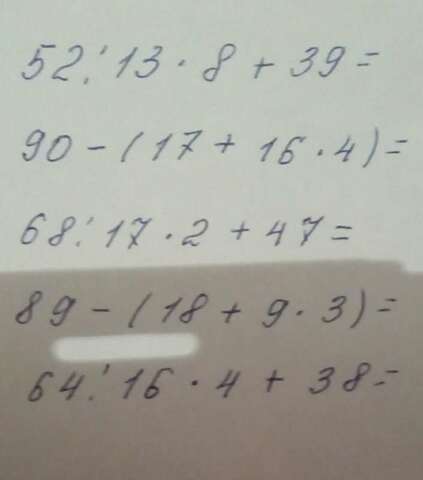 52:13·8+39=
90-(17+16·4)=
68:17·2+47=
89-(18+9·3)=
64:16·4+38=